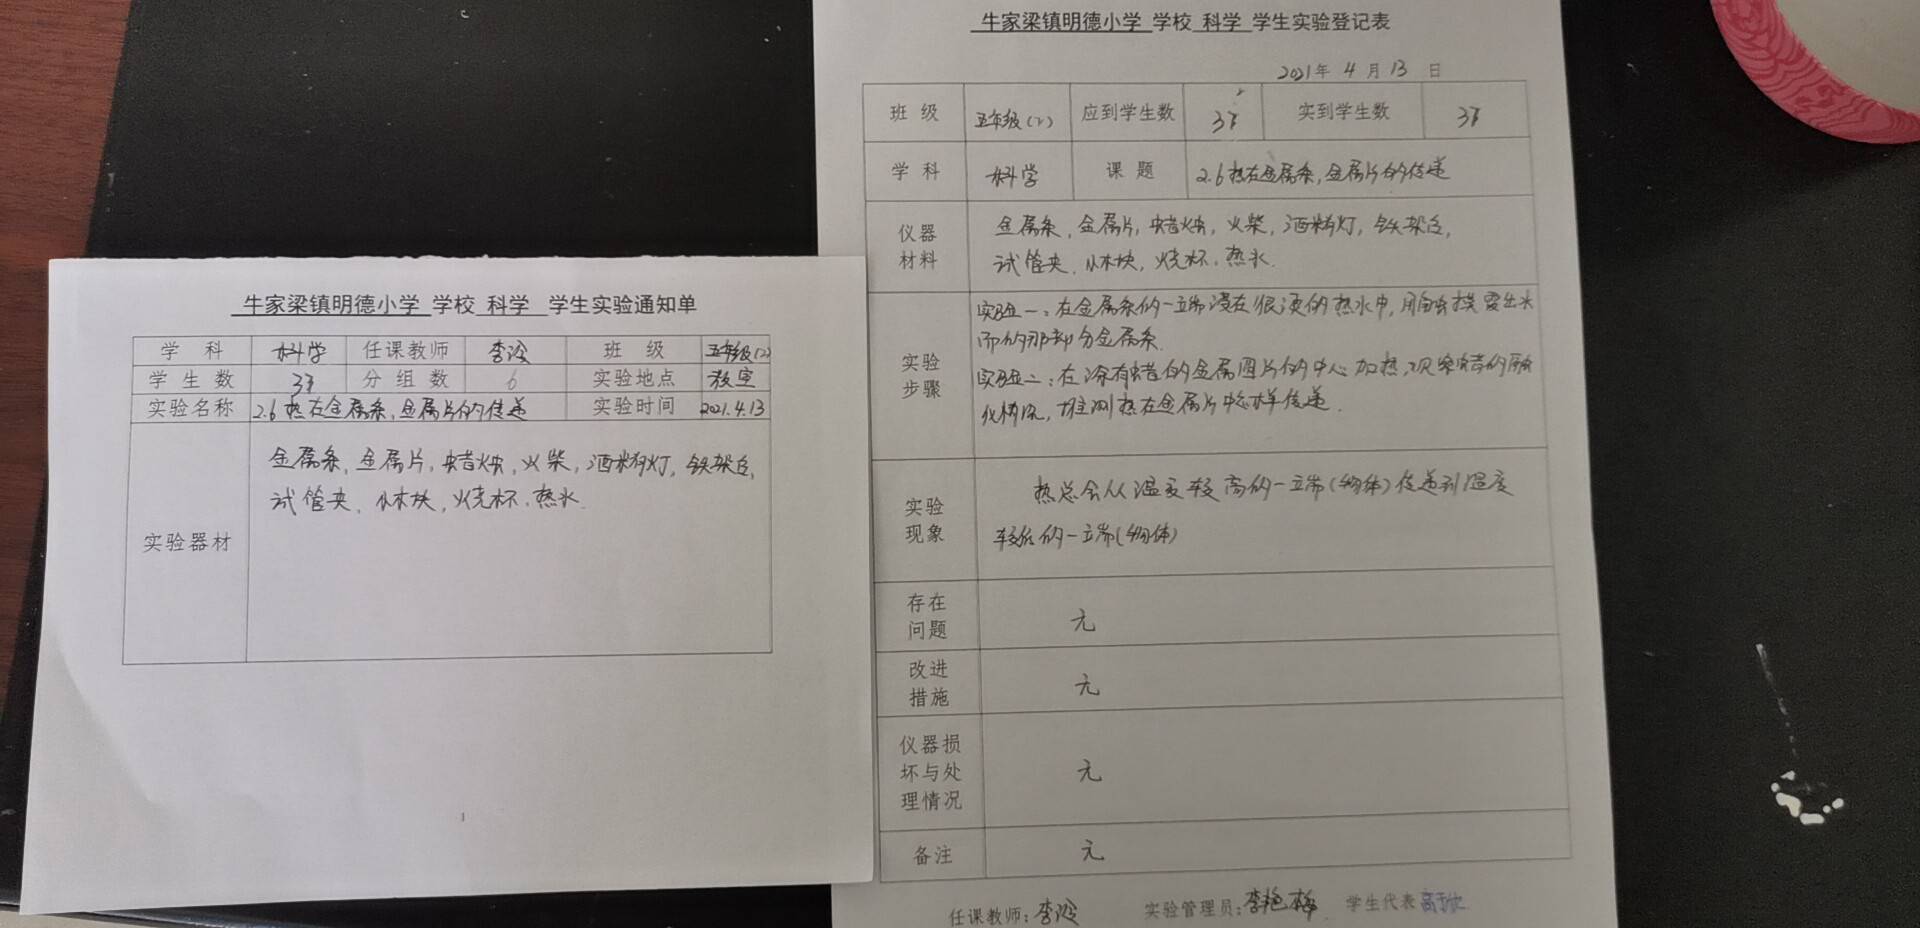 牛家梁镇明德小学 学校 科学 学生实验通知单
学 科 科学 任课教师 班 级 五年级(2)
学 生 数 分 组 数 6 实验地点 教室
实验名称 2.6热在金属条,金属片的传递 实验时间 2021.4.13
金属条,金属片,蜡烛,火柴,酒精灯,铁架台,
试管夹、木块,烧杯、热水.
实验器材
牛家梁镇明德小学 学校 科学 学生实验登记表
2021年 4 月 13 日
班 级 五年级(2) 应到学生数 实到学生数
学 科 科学 课 题 2.6热在金属条,金属片的传递
仪器
材料
金属条,金属片,蜡烛,火柴,酒精灯,铁架台,
试管夹、木块,烧杯、热水.
实验
步骤
实验一:在金属条的一端浸在很烫的热水中,用手摸露出水
面的那部分金属条.
实验二:在涂有蜡的金属圆片的中心加热,观察蜡的融
化情况,推测热在金属片中怎样传递.
实验
现象
热总会从温度较高的一端(物体)传递到温度
较低的一端(物体)
存在
问题
无
改进
措施
无
仪器损
坏与处
理情况
无
备注 无
任课教师: 实验管理员:李艳梅 学生代表